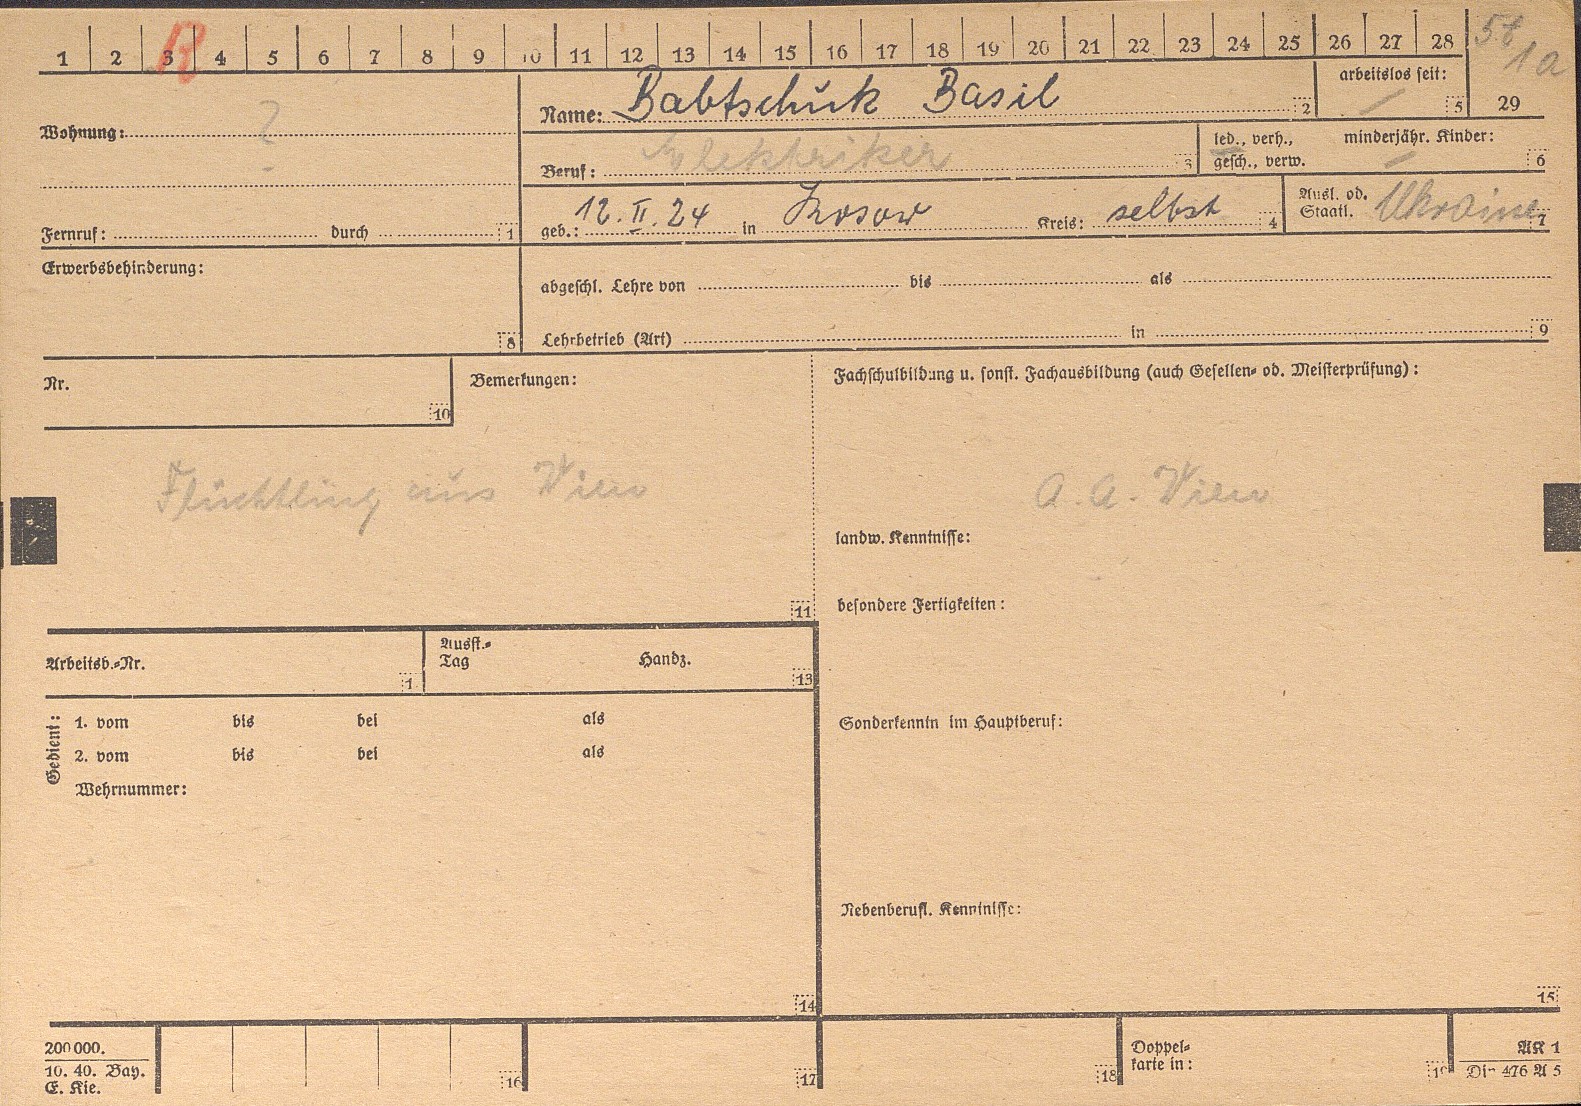 1 2 3 4 5 6 7 8 9 10 11 12 13 14 15 16 17 18 19 20 21 22 23 24 25 26 27 28
R
1a
29
Wohnung: ?
Name: Babtschuk Basil 2
arbeitslos seit: / 5
Beruf: Elektriker 3
led., verh.,
gesch., verw.
minderjähr. Kinder: 6
Fernruf: durch 1
geb.: 12. II. 24 in Kosow Kreis: selbst 4
Ausl. od.
Staatl. Ukraine 7
Erwerbsbehinderung: 8
abgeschl. Lehre von bis als
Lehrbetrieb (Art) in 9
Nr. 10
Bemerkungen:
Fachschulbildung u. sonst. Fachausbildung (auch Gesellen- od. Meisterprüfung):
Flüchtling aus Wien
A.A. Wien
landw. Kenntnisse:
besondere Fertigkeiten:
11
Arbeitsb.-Nr. 1
Ausst.-
Tag Handz. 13
Gedient:
1. vom bis bei als
2. vom bis bei als
Wehrnummer:
Sonderkenntn im Hauptberuf:
Nebenberufl. Kenntnisse:
14
15
200000.
10. 40. Bay.
E. Kie.
16
17
18
Doppel-
karte in:
19
AK 1
Din 476 A 5